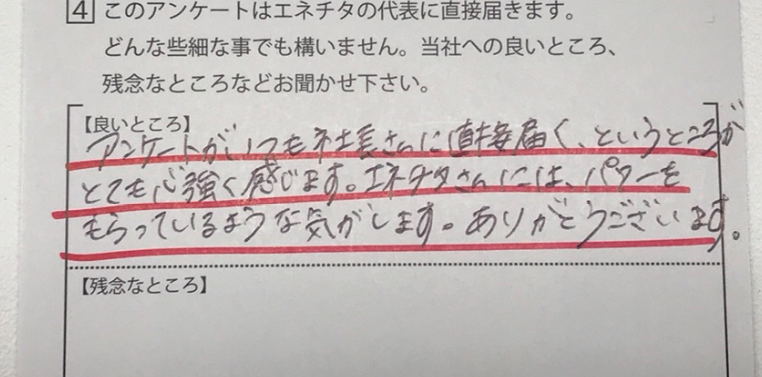 4 このアンケートはエネチタの代表に直接届きます。
どんな些細な事でも構いません。当社への良いところ、
残念なところなどお聞かせ下さい。
【良いところ】
アンケートがいつも社長さんに直接届く、というところが
とても心強く感じます。エネチタさんには、パワーを
もらっているような気がします。ありがとうございます。
【残念なところ】